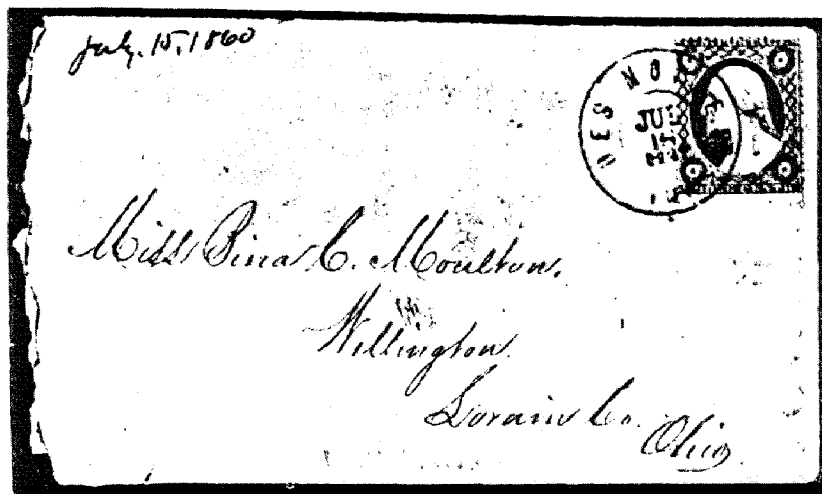 July. 15, 1860
DES MO
JUL
15
Miss Pina C. Moulton,
Wellington
Lorain Co.
Ohio